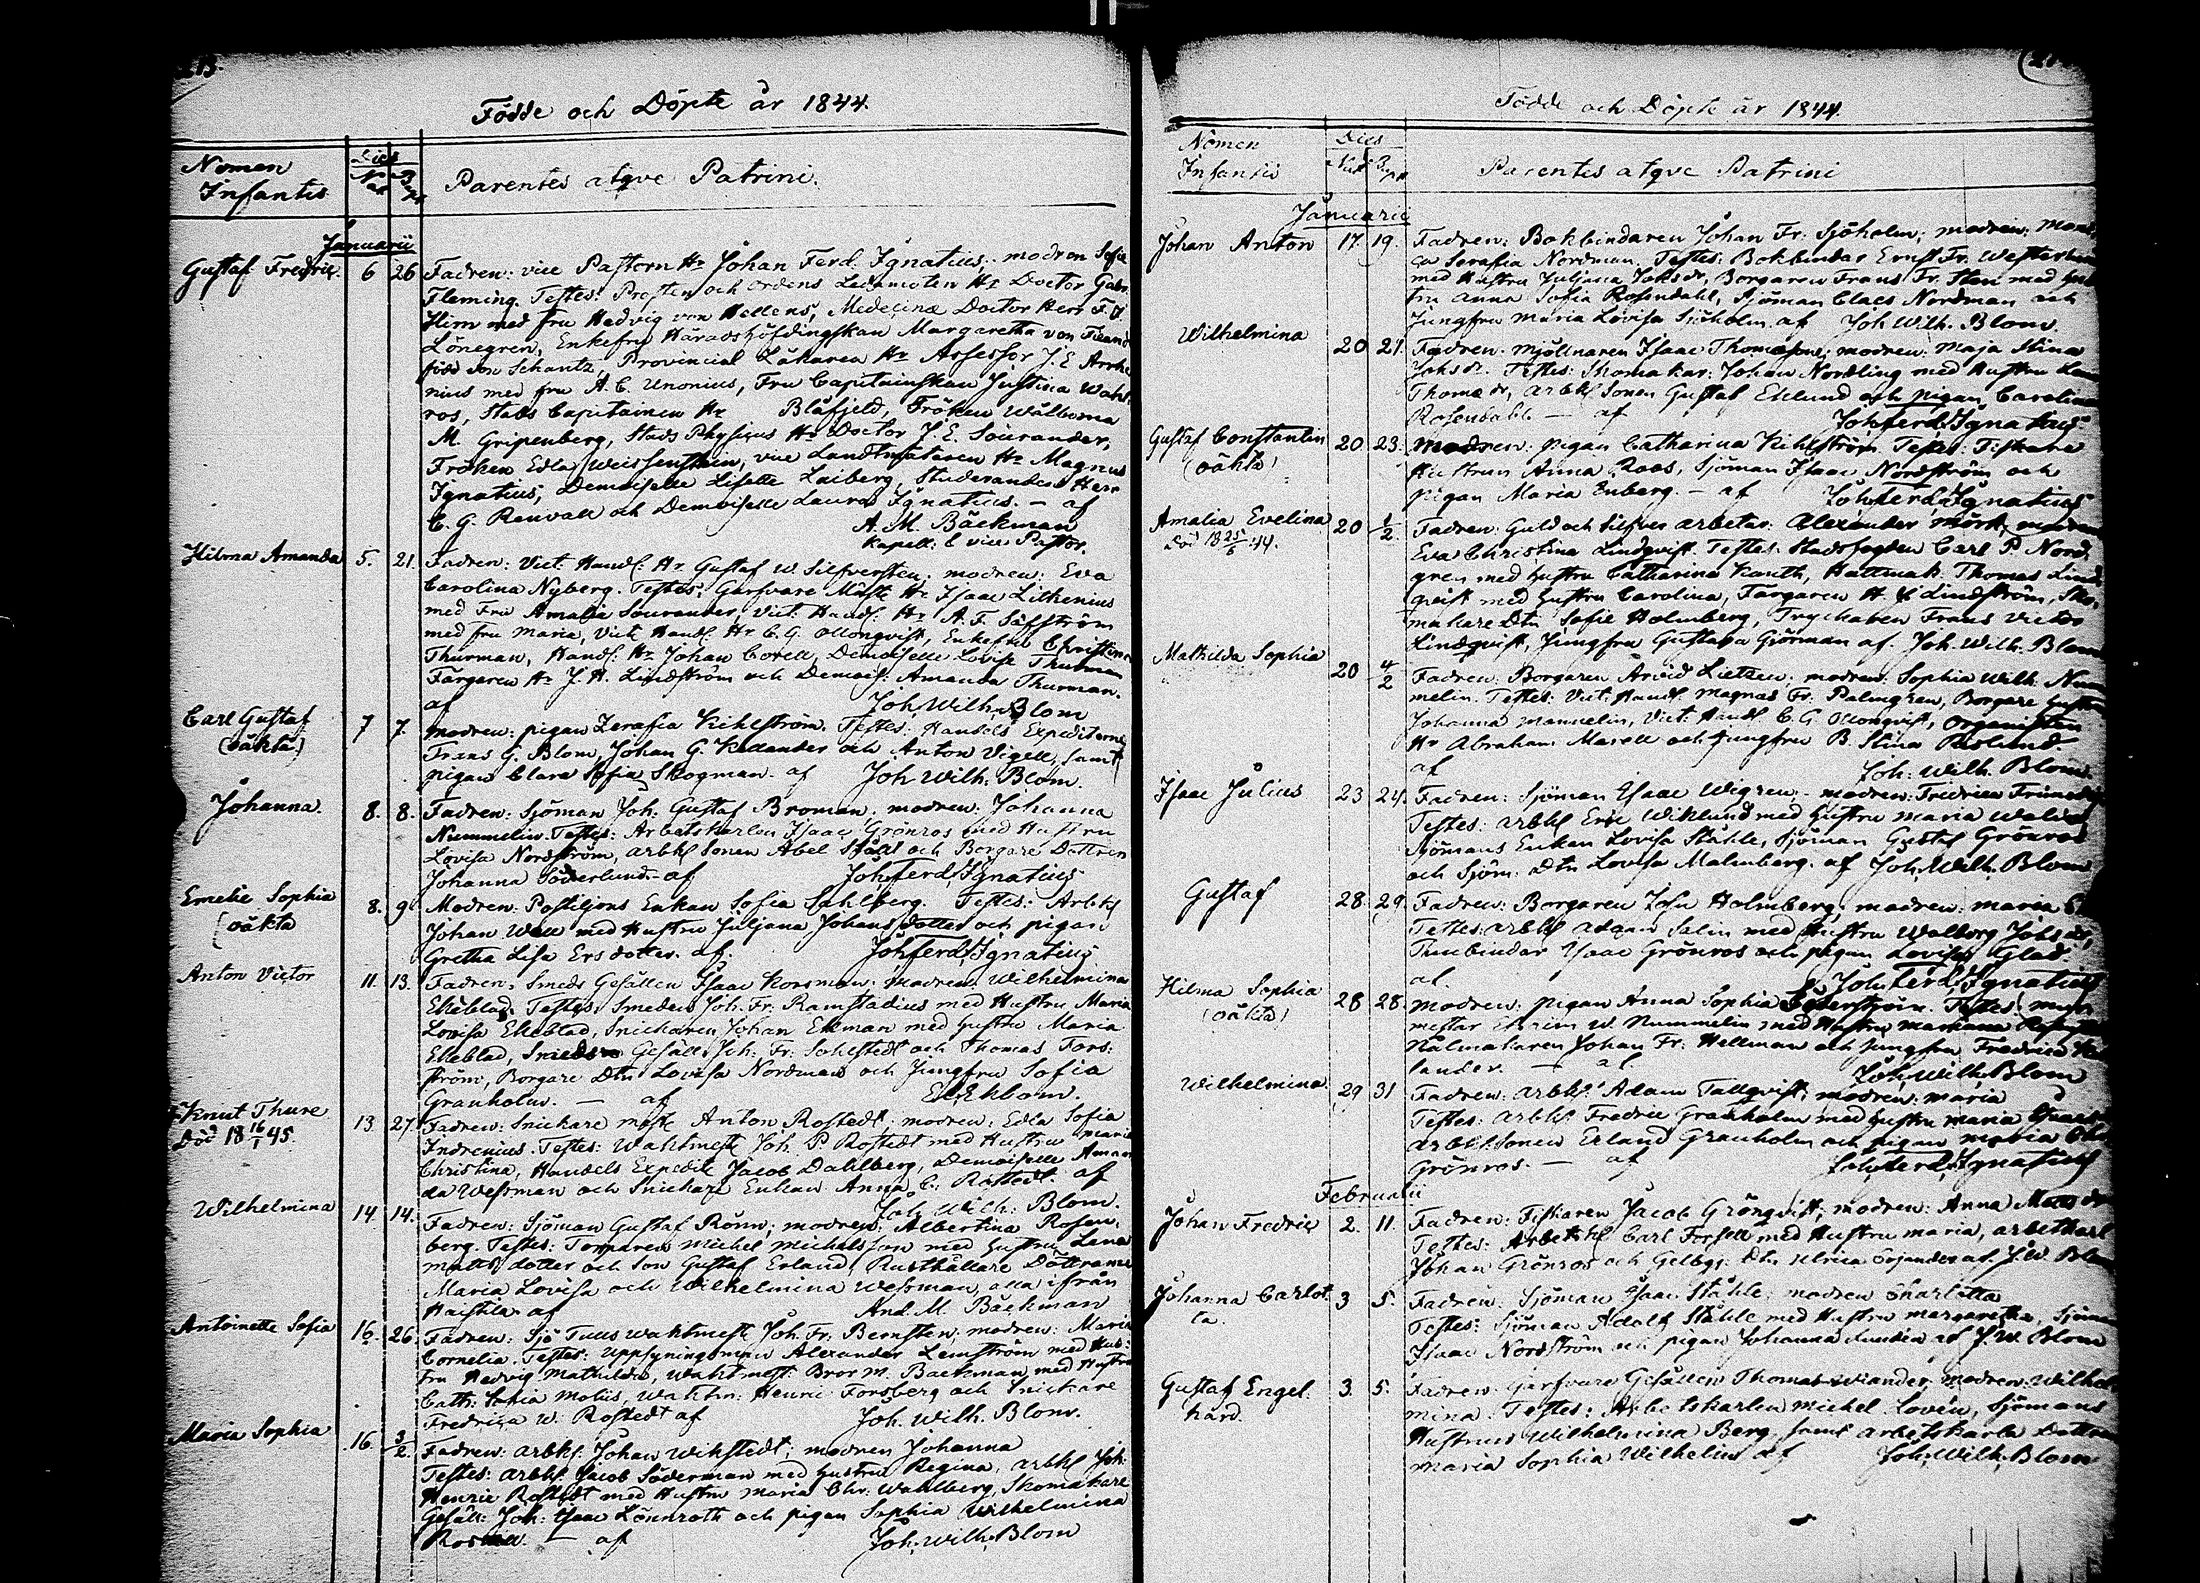 Födde och Döpte år 1844.
Nomen
Infantis
Dies
Nat
Bpt
Parentes atqve Patrini.
Januarii
Gustaf Fredric. 6 26 Fadren: vice Pastorn Hr Johan Ferd. Ignatius; modren Sofia
Fleming. Testes: Prosten och Ordens Ledamoten Hr Doctor Gabr.
Hirn med fru Hedvig von Hellens, Medecinæ Doctor Herr F.
Lönegren, Enkefru Häradshöfdingskan Margaretha von
född von Schantz, Provincial Läkaren Hr Assessor J. E. Arrhe
nius med fru A. C. Unonius, Fru Capitainskan Justina Wahl
ros, Stabs Capitainen Hr Blåfjeld, Fröken Wälborna
M. Gripenberg, Stads Physicus Hr Doctor J. E. Sourander,
Fröken Edla Weissenstein, vice Landtmätaren Hr Magnus
Ignatius, Demoiselle Lisette Laiberg, Studeranden Herr
C. G. Renvall och Demoiselle Laura Ignatius. — af
A. M. Bäckman
Kapell: C vice Pastor.
Hilma Amanda 5. 21. Fadren: Vict. Handl: Hr Gustaf W. Silfversten; modren: Eva
Carolina Nyberg. Testes: Garfvare Mäst: Hr Isaac Lilhenius
med Fru Amalia Sourander, Vict. Handl: Hr A. F. Säfström
med fru Maria, Vict. Handl: Hr C. G. Ollonqvist, Enkefru Christina
Thurman, Handl: Hr Johan Corell, Demoiselle Lovisa Thurman
Färgaren Hr J. H. Lindström och Demois: Amanda Thurman.
af Joh. Wilh. Blom
Carl Gustaf
(oäkta) 7 7. Modren: pigan Zerafia Kihlström. Testes: Handels Expediterne
Frans G. Blom, Johan G. Kedander och Anton Vigell, samt
pigan Clara Sofia Skogman. af Joh. Wilh. Blom.
Johanna. 8. 8. Fadren: Sjöman Joh: Gustaf Broman; modren: Johanna
Nummelin. Testes: Arbetskarlen Isaac Grönros med Hustru
Lovisa Nordström, arbkl Sonen Abel Ståhl och Borgare Dottren
Johanna Söderlund. af Joh. Ferd. Ignatius
Emelie Sophia
(oäkta 8. 9. Modren: Postiljons Enkan Sofia Sahlberg. Testes: Arbkl
Johan Wall med Hustru Juljana Johansdotter och pigan
Gretha Lisa Ersdotter. af. Joh. Ferd. Ignatius
Anton Victor 11. 13. Fadren: Smeds Gesällen Isaac Korsman; modren: Wilhelmina
Ekeblad. Testes: Smeden Joh. Fr. Ramstadius med Hustru Maria
Lovisa Ekeblad, Snickaren Johan Ekman med Hustru Maria
Ekeblad, Gesäll: Joh: Fr: Sohlstedt och Thomas Fors:
ström, Borgare Dtn Lovisa Nordman och Jungfru Sofia
Granholm. — af Ekblom.
Knut Thure
Död 18 16/1 45. 13 27 Fadren: Snickare mäst: Anton Rostedt; modren: Edla Sofia
Indrenius. Testes: Wahtmäst: Joh. P Rostedt med Hustru Maria
Christina, Handels Expedit: Jacob Dahlberg, Demoiselle Aman
da Wessman och Snickare Enkan Anna C. Rostedt. af
Joh. Wilh: Blom.
Wilhelmina 14 14. Fadren: Sjöman Gustaf Rönn; modren: Albertina Rosen:
berg. Testes: Torparen Michel Michelsson med Hustru Lena
Matts dotter och Son Gustaf Erland, Rusthållare Döttrarne
Maria Lovisa och Wilhelmina Wessman, alla ifrån
Haistila. af And. M. Bäckman
Antoinette Sofia 16. 26. Fadren: Sjö Tulls wahtmäst: Joh. Fr. Bernsten; modren: Maria
Cornelia. Testes: Uppsyningsman Alexander Lemström med Hus:
tru Hedvig Mathilda, Wahtmäst: Bror M. Backman med Hustru
Cath: Sofia Molin, Wahtm: Henric Forsberg och Snickare
Fredrica W. Rostedt af Joh. Wilh. Blom.
Maria Sophia 16. 3/2. Fadren: arbkl. Johan Wikstedt; modren Johanna
Testes: arbkl. Jacob Söderman med Hustru Regina, arbkl Joh:
Henric Rostedt med Hustru Maria Chr: Wahlberg, Skomakare
Gesäll: Joh: Isaac Lönnroth och pigan Sophia Wilhelmina
— af Joh. Wilh. Blom
Födde och Döpte år 1844.
Nomen
Infantis
Dies
Nat
Bapt
Parentes atqve Patrini
Januarii
Johan Anton 17. 19. Fadren: Bokbindaren Johan Fr: Sjöholm; modren:
Serafia Nordman. Testes: Bokbindar Ernst Fr. Westerlund
med Hustru Juljana Johsdr, Borgaren Frans Fr. Sten med Hus
tru Anna Sofia Rosendahl, Sjöman Claes Nordman och
Jungfru Maria Lovisa Sjöholm. af Joh. Wilh. Blom.
Wilhelmina 20 21. Fadren: Mjöllnaren Isaac Thomasson; modren: Maja Stina
Johsdr. Testes: Skomakar: Johan Nordling med Hustru
Thomæ dr, arbkl Sonen Gustaf Eklund och pigan Carolina
Rosendahl — af Joh. Ferd. Ignatius
Gustaf Constantin
(oäkta) 20 23. Modren: pigan Catharina Kihlström. Testes: Fiskare
Hustrun Anna Roos, Sjöman Isaac Nordström och
pigan Maria Enberg. — af Joh. Ferd. Ignatius
Amalia Evelina
Död 18 25/6 44. 20 1/2. Fadren: Guld och Silfver arbetar: Alexander Mörk, modren
Eva Christina Lindqvist. Testes: Stadsfogden Carl P. Nord
gren med Hustru Catharina Kauth, Hattmak: Thomas Lind
qvist med Hustru Carolina, Färgaren H. Lindström, Sko
makare Dtn Sofie Holmberg, Tryckaren Frans Victor
Lindqvist, Jungfru Gustava Gjörman af. Joh. Wilh. Blom
Mathilda Sophia 20 4/2 Fadren: Borgaren Arvid Lietzen; modren: Sophia Wilh. Num
melin. Testes: Vict. Handl. Magnus Fr. Palmgren, Borgare Hustru
Johanna Mannelin, Vict. Handl C. G. Ollonqvist, Organisten
Hr Abraham Maxell och Jungfru B. Stina
af Joh: Wilh. Blom.
Isaac Julius 23 24. Fadren: Sjöman Isaac Wigren; modren: Fredrica
Testes: arbkl Eric Wiklund med Hustru Maria
Sjömans Enkan Lovisa Ståhle, Sjöman Gustaf Grönros
och Sjöm: Dtn Lovisa Malmberg. af Joh. Wilh. Blom
Gustaf 28. 29. Fadren: Borgaren Josua Holmberg; modren: Maria
Testes: arbkl Adam Salin med Hustru Walborg Johsdr,
Tunnbindar Isaac Grönros och pigan Lovisa Glad
af. Joh. Ferd. Ignatius
Hilma Sophia
(oäkta) 28 28. Modren: pigan Anna Sophia Söderström. Testes:
mestar Ehrim W. Nummelin med Hustru Mariana
Nålmakaren Johan Fr: Hellman och Jungfru Fredrica
lander. — af. Joh. Wilh. Blom
Wilhelmina. 29 31 Fadren: arbkl: Adam Tallqvist; modren: Maria
Testes: arbkl: Fredric Granholm med Hustru Maria
arbkl. Sonen Erland Granholm och pigan Maria
Grönros. — af Joh. Ferd. Ignatius
Februarii
Johan Fredric 2. 11. Fadren: Fiskaren Jacob Grönqvist; modren: Anna Matts dr
Testes: Arbetskl Carl Forsell med Hustru Maria, arbetkarl
Johan Grönros och Gelbgj: Dtn Ulrica af. J. W. Blom
Johanna Carlot
ta. 3 5. Fadren: Sjöman Isaac Ståhle; modren Charlotta
Testes: Sjöman Adolf Ståhle med Hustru Margaretha, Sjöman
Isaac Nordström och pigan Johanna Lundén af J. W. Blom
Gustaf Engel
hard. 3. 5. Fadren: Garfvare Gesällen Thomas Wiander; modren: Wilhel
mina. Testes: Arbetskarlen Michel Lovén, Sjömans
Hustrun Wilhelmina Berg, samt arbetskarls Dottren
Maria Sophia Wilhelius af Joh. Wilh. Blom